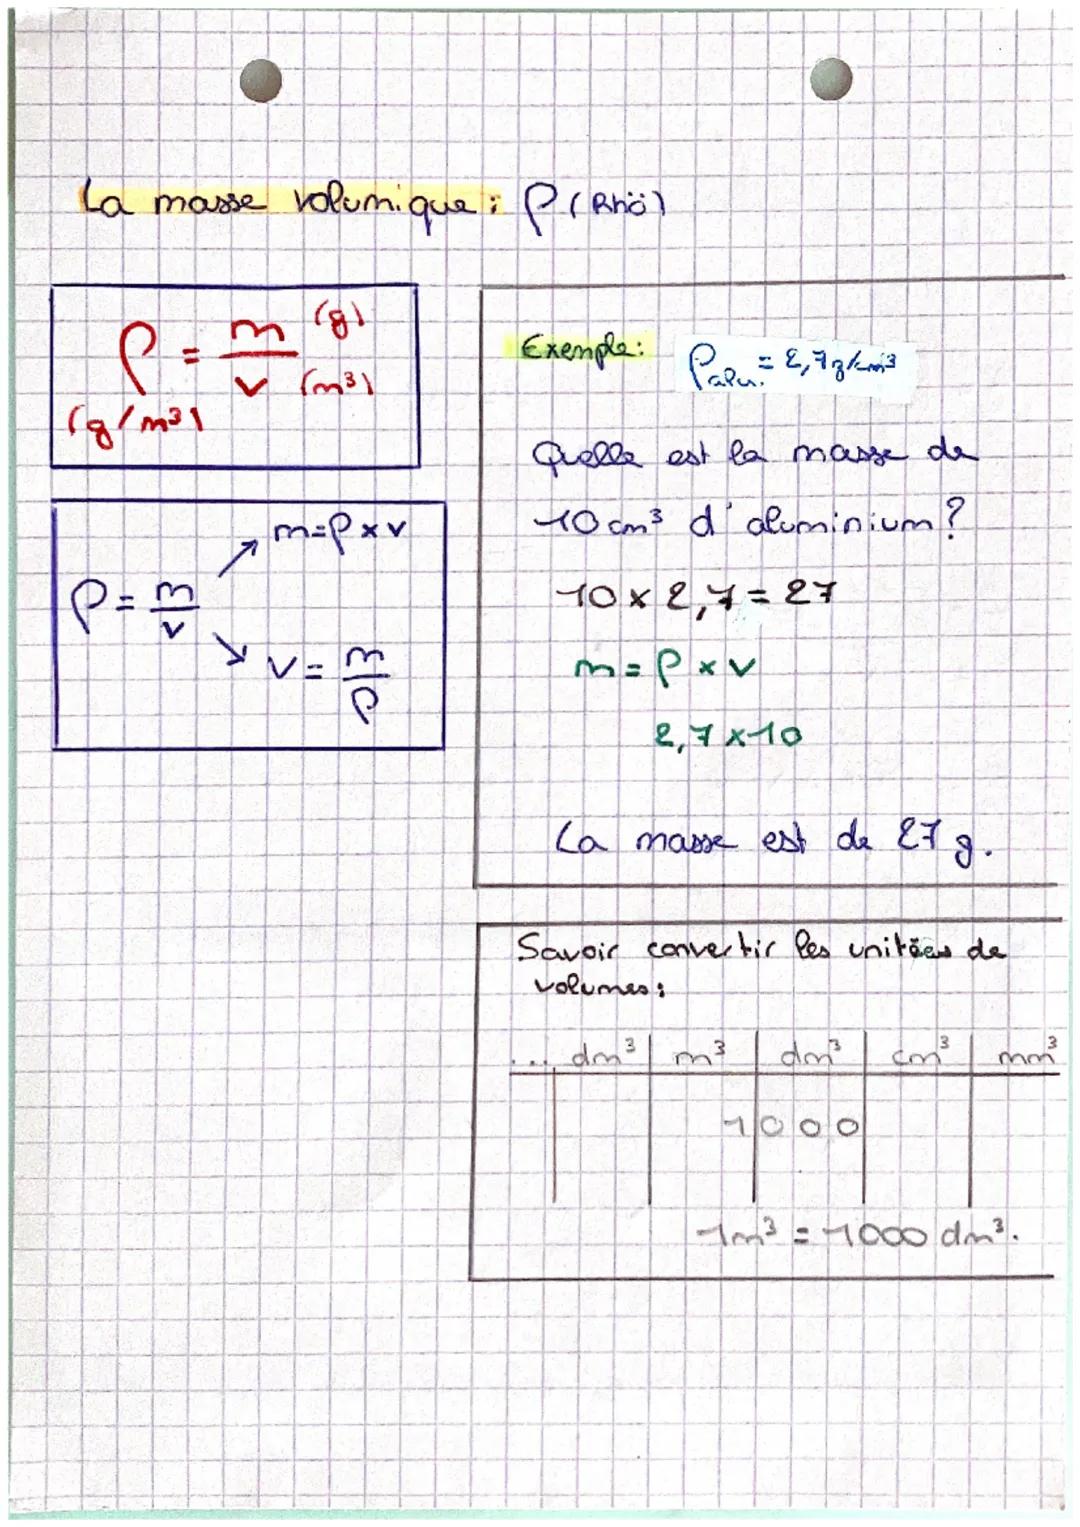 La masse volumique : ρ (Rhö)
ρ = m/v (g) (m³)
(g/m³)
ρ = m/v
m = ρ x v
v = m/ρ
Exemple : ρalu. = 2,7g/cm³
Quelle est la masse de
10 cm³ d'aluminium ?
10 x 2,7 = 27
m = ρ x v
2,7 x 10
La masse est de 27 g.
Savoir convertir les unitées de
volumes :
... dm³ | m³ | dm³ | cm³ | mm³
1 | 0 0 0
1m³ = 1000 dm³.